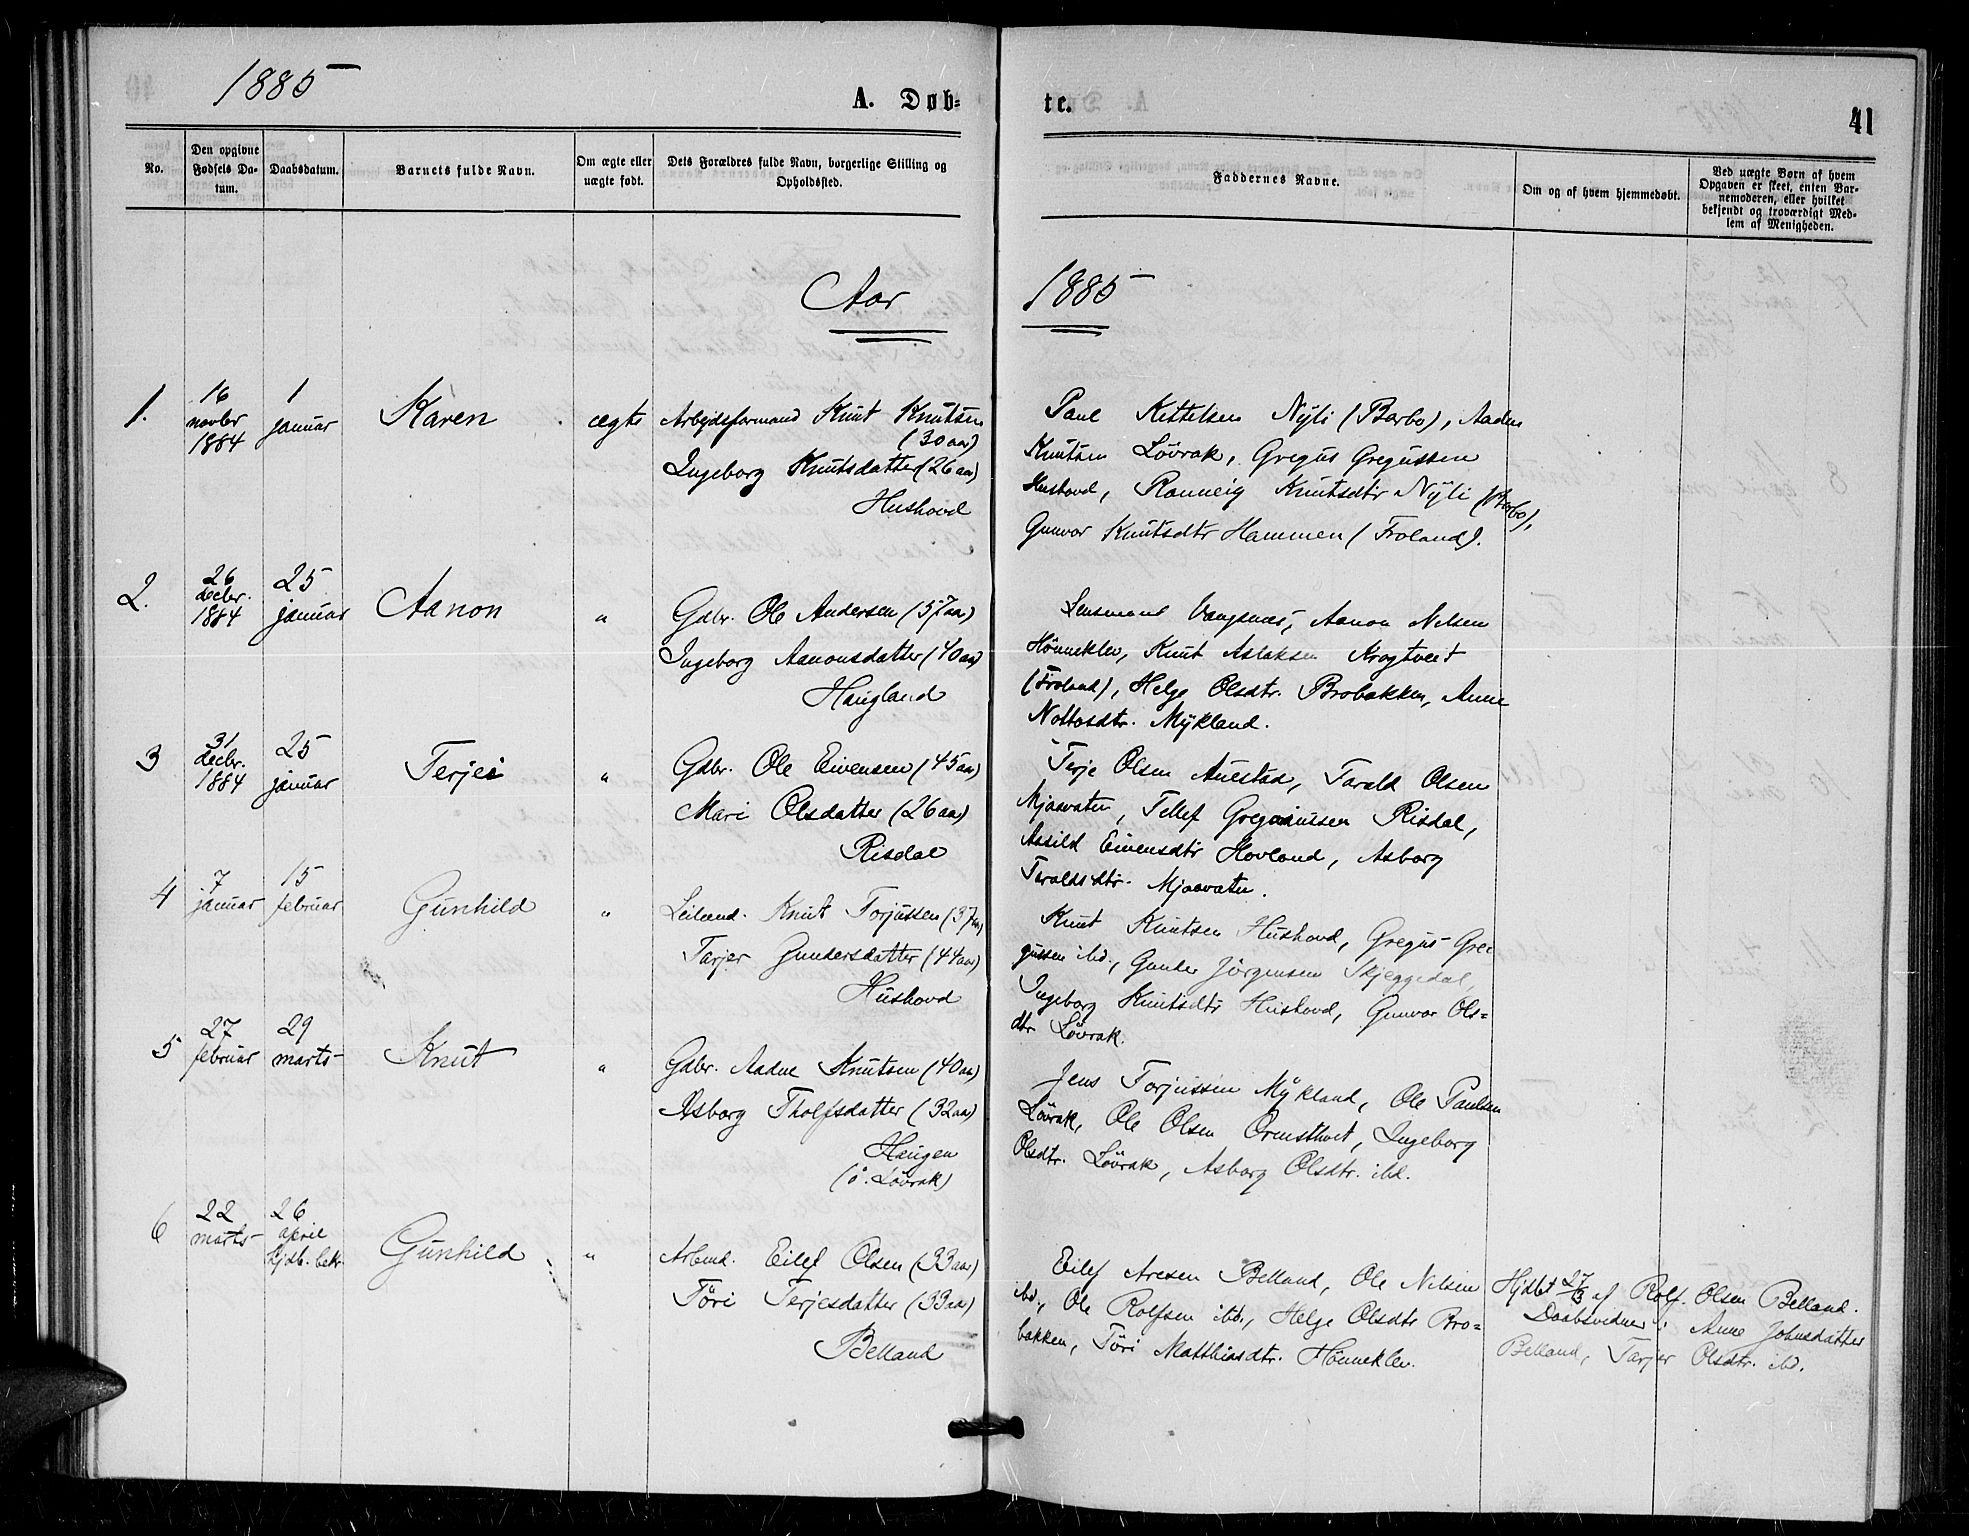 1885
A. Døb=
te.
41
No.
Den opgivne Fødsels Da-
tum.
Daabsdatum.
Barnets fulde Navn.
Om ægte eller
uægte født.
Dets Forældres fulde Navn, borgerlige Stilling og
Opholdssted.
Faddernes Navne.
Om og af hvem hjemmedøbt.
Ved uægte Børn af hvem
Opgaven er skeet, enten Bar-
nemoderen, eller hvilket
bekjendt og troværdigt Med-
lem af Menigheden.
Aar
1885
1.
16
novbr
1884
1
januar
Karen
ægte
Arbejdsformand Knut Knutsen
(30 aar)
Ingeborg Knutsdatter (26 aar)
Hushovd
Paul Kittelsen Nyli (Barbo), Aadne
Knutsen Lövrak, Gregus Gregussen
Hushovd, Ranneig Knutsdtr Nyli (Barbo),
Gunvor Knutsdtr Hammen (Froland).
2.
26
decbr.
1884
25
januar
Aanon
"
Gdbr. Ole Andersen (37 aar)
Ingeborg Aanonsdatter (40 aar)
Haugland
Lensmand Vangsnes, Aanon Nelsen
Hönneklev, Knut Aslaksen Krogtveit
(Froland), Helge Olsdtr. Brobakken, Anne
Nottosdtr. Mykland.
3
31
decbr.
1884
25
januar
Terjei
"
Gdbr. Ole Eivensen (45 aar)
Mari Olsdatter (26 aar)
Risdal
Terje Olsen Auestad, Tarald Olsen
Mjaavatn, Tellef Gregoriussen Risdal,
Assild Eivensdtr Hovland, Asborg
Taraldsdtr. Mjaavatn.
4
7
januar
15
februar
Gunhild
"
Leilænd. Knut Torjussen (37 aar)
Tarjer Gundersdatter (44 aar)
Hushovd
Knut Knutsen Hushovd, Gregus Gre-
gussen ibd., Gunder Jörgensen Skjeggedal,
Ingeborg Knutsdtr Hushovd, Gunvor Ols=
dtr Lövrak.
5
27
februar
29
marts
Knut
"
Gdbr. Aadne Knutsen (40 aar)
Asborg Tholfsdatter (32 aar)
Haugen
(ö. Lövrak)
Jens Torjussen Mykland, Ole Paulsen
Lövrak, Ole Olsen Ormsthvet, Ingeborg
Olsdtr. Lövrak, Asborg Olsdtr. ibd.
6
22
marts
26
april
hjdb. bekr.
Gunhild
"
Arbmd. Eilef Olsen (33 aar)
Töri Terjesdatter (33 aar)
Belland
Eilef Aresen Belland, Ole Nelsen
ibd., Ole Rolfsen ibd., Helge Olsdtr Bro=
bakken, Töri Matthiasdtr. Hönneklev.
Hjdbt 27/3 af Rolf. Olsen Belland.
Daabsvidner: Anne Johnsdatter
Belland, Tarjer Olsdtr. ibd.